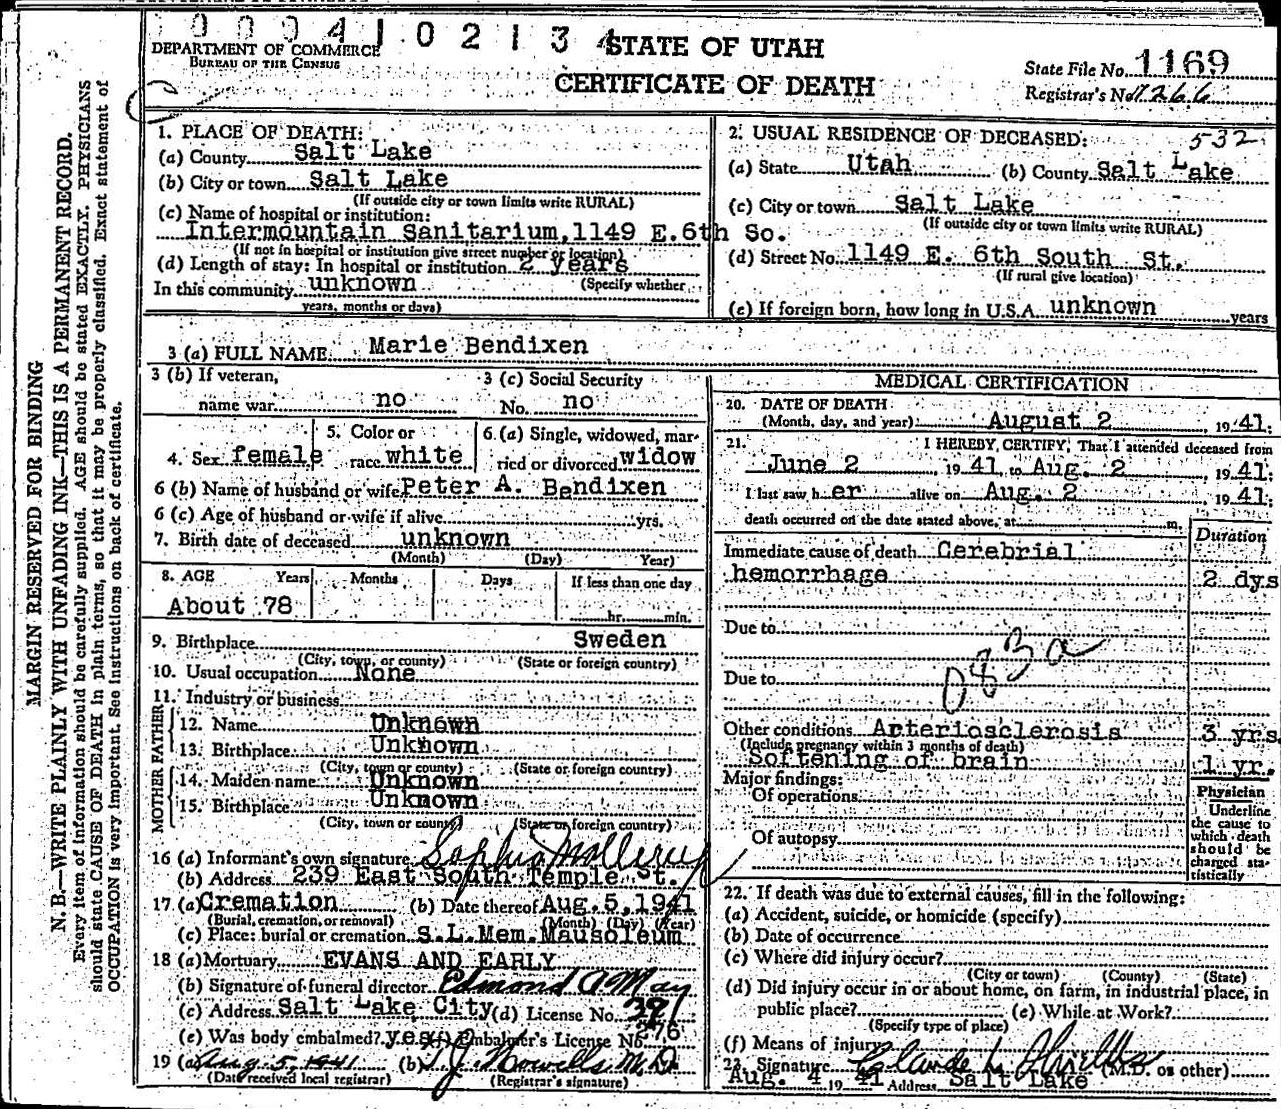 0 0 0 4 1 0 2 1 3 4
DEPARTMENT OF COMMERCE
BUREAU OF THE CENSUS
STATE OF UTAH
CERTIFICATE OF DEATH
State File No. 1169
Registrar's No. 1266
MARGIN RESERVED FOR BINDING
N. B.—WRITE PLAINLY WITH UNFADING INK—THIS IS A PERMANENT RECORD.
Every item of information should be carefully supplied. AGE should be stated EXACTLY. PHYSICIANS
should state CAUSE OF DEATH in plain terms, so that it may be properly classified. Exact statement of
OCCUPATION is very important. See instructions on back of certificate.
1. PLACE OF DEATH:
(a) County Salt Lake
(b) City or town Salt Lake
(If outside city or town limits write RURAL)
(c) Name of hospital or institution:
Intermountain Sanitarium, 1149 E. 6th So.
(If not in hospital or institution give street number or location)
(d) Length of stay: In hospital or institution 2 years
In this community unknown (Specify whether
years, months or days)
2. USUAL RESIDENCE OF DECEASED: 532
(a) State Utah (b) County Salt Lake
(c) City or town Salt Lake
(If outside city or town limits write RURAL)
(d) Street No. 1149 E. 6th South St.
(If rural give location)
(e) If foreign born, how long in U.S.A. unknown years
3 (a) FULL NAME Marie Bendixen
3 (b) If veteran,
name war no
3 (c) Social Security
No. no
4. Sex female
5. Color or
race white
6. (a) Single, widowed, mar-
ried or divorced widow
6 (b) Name of husband or wife Peter A. Bendixen
6 (c) Age of husband or wife if alive yrs.
7. Birth date of deceased unknown
(Month) (Day) Year)
8. AGE Years Months Days If less than one day
About 78 hr. min.
9. Birthplace Sweden
(City, town, or county) (State or foreign country)
10. Usual occupation None
11. Industry or business
FATHER
12. Name Unknown
13. Birthplace Unknown
(City, town or county) (State or foreign country)
MOTHER
14. Maiden name Unknown
15. Birthplace Unknown
(City, town or county) (State or foreign country)
16 (a) Informant's own signature Sophia
(b) Address 239 East South Temple St.
17 (a) Cremation (b) Date thereof Aug. 5, 1941
(Burial, cremation, or removal) (Month) (Day) (Year)
(c) Place: burial or cremation S.L. Mem. Mausoleum
18 (a) Mortuary EVANS AND EARLY
(b) Signature of funeral director Edmond A May
(c) Address Salt Lake City (d) License No.
(e) Was body embalmed? yes (f) Embalmer's License No. 276
19 (a) Aug. 5, 1941 (b) T J Howells M.D.
(Date received local registrar) (Registrar's signature)
MEDICAL CERTIFICATION
20. DATE OF DEATH
(Month, day, and year) August 2, 1941.
21. I HEREBY, CERTIFY, That I attended deceased from
June 2, 1941 to Aug. 2, 1941.
I last saw her alive on Aug. 2, 1941.
death occurred on the date stated above, at m.
Duration
Immediate cause of death Cerebrial
hemorrhage 2 dys
Due to
083a
Due to
Other conditions Arteriosclerosis 3 yrs.
(Include pregnancy within 3 months of death)
Softening of brain 1 yr.
Major findings:
Of operations
Of autopsy
Physician
Underline
the cause to
which death
should be
charged sta-
tistically
22. If death was due to external causes, fill in the following:
(a) Accident, suicide, or homicide (specify)
(b) Date of occurrence
(c) Where did injury occur?
(City or town) (County) (State)
(d) Did injury occur in or about home, on farm, in industrial place, in
public place? (e) While at Work?
(Specify type of place)
(f) Means of injury
23. Signature Claude L (M.D. or other)
Aug. 4 1941 Address Salt Lake